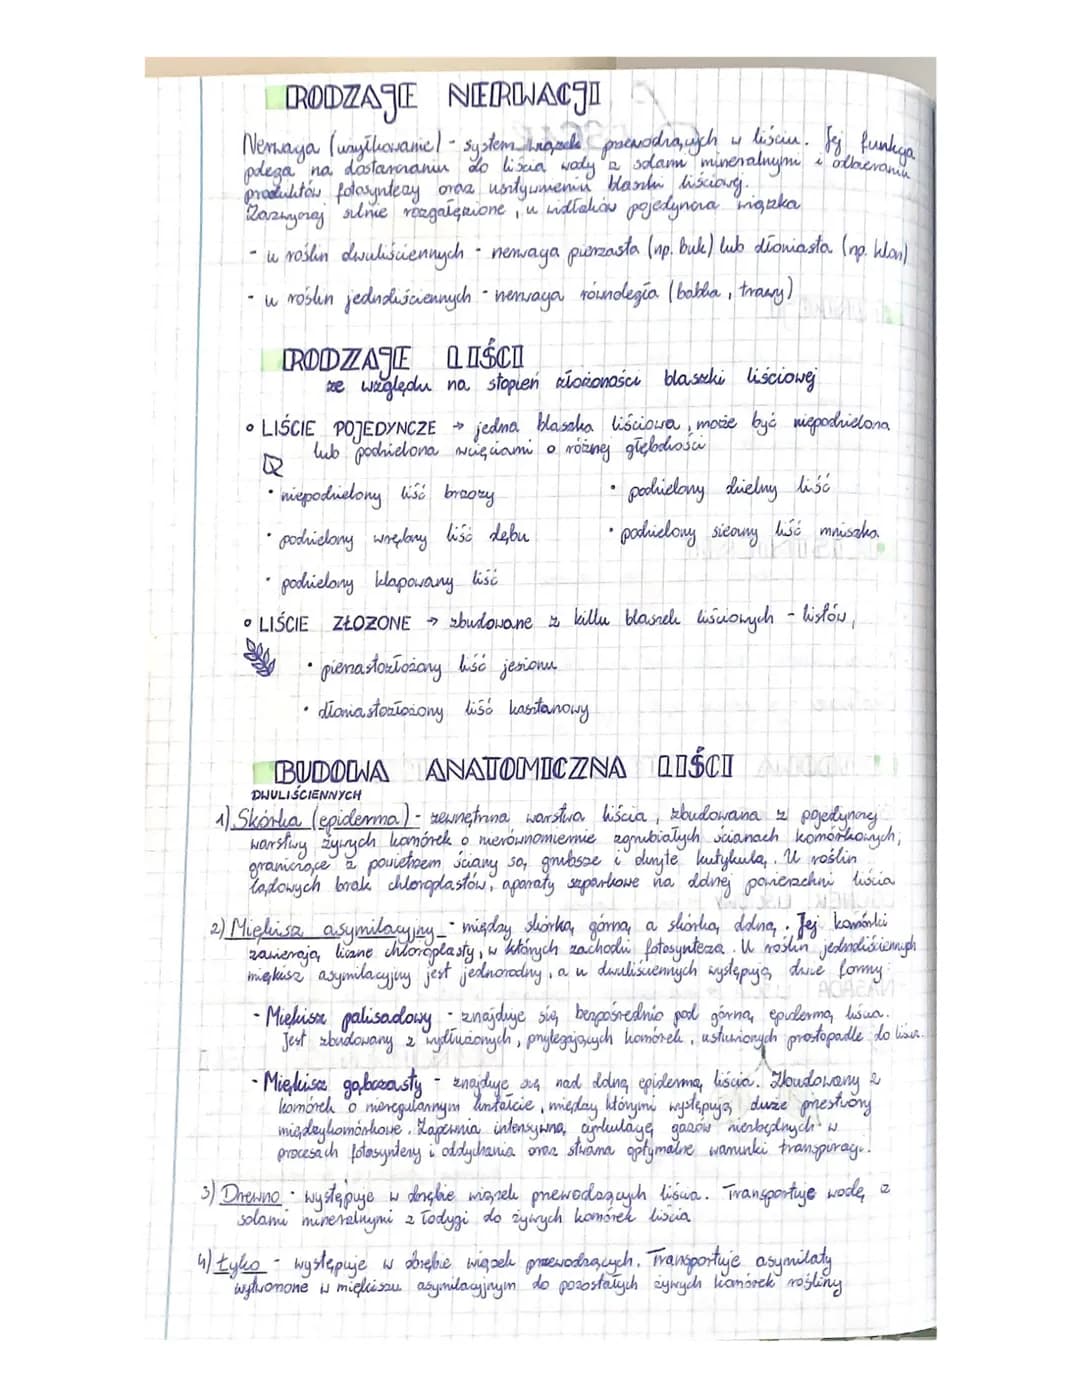 RODZAJE NERWACJI
Nerwacja (użyłkowanie) - system wiązek przewodzących w liściu. Jej funkcja
polega na dostarczaniu do liścia wody z solami mineralnymi i odbieraniu
produktów fotosyntezy oraz usztywnieniu blaszki liściowej.
Zazwyczaj silnie rozgałęzione, u widłaków pojedyncza wiązka
- u roślin dwuliściennych - nerwacja pierzasta (np. buk) lub dłoniasta (np. klon)
- u roślin jednoliściennych - nerwacja równoległa (babka, trawy)
RODZAJE LIŚCI
ze względu na stopień złożoności blaszki liściowej
• LIŚCIE POJEDYNCZE → jedna blaszka liściowa, może być niepodzielona
lub podzielona wcięciami o różnej głębokości
• niepodzielony liść brzozy
• podzielony dzielny liść
• podzielony wrębny liść dębu
• podzielony sieczny liść mniszka
• podzielony klapowany liść
• LIŚCIE ZŁOZONE → zbudowane z kilku blaszek liściowych - listków,
• pierzastozłożony liść jesionu
• dłoniastozłożony liść kasztanowy
BUDOWA ANATOMICZNA LIŚCI
DWULIŚCIENNYCH
1) Skórka (epiderma) - zewnętrzna warstwa liścia, zbudowana z pojedynczej
warstwy żywych komórek o nierównomiernie zgrubiałych ścianach komórkowych,
graniczące z powietrzem ściany są grubsze i okryte kutykulą. U roślin
lądowych brak chloroplastów, aparaty szparkowe na dolnej powierzchni liścia
2) Miękisz asymilacyjny - między skórką górną a skórką dolną. Jej komórki
zawierają liczne chloroplasty, w których zachodzi fotosynteza. U roślin jednoliściennych
miękisz asymilacyjny jest jednorodny, a u dwuliściennych występują dwie formy:
- Miękisz palisadowy - znajduje się bezpośrednio pod górną epidermą liścia.
Jest zbudowany z wydłużonych, przylegających komórek, ustawionych prostopadle do liścia.
- Miękisz gąbczasty - znajduje się nad dolną epidermą liścia. Zbudowany z
komórek o nieregularnym kształcie, między którymi występują duże przestwory
międzykomórkowe. Zapewnia intensywną cyrkulację gazów niezbędnych w
procesach fotosyntezy i oddychania oraz stwarza optymalne warunki transpiracji.
3) Drewno - występuje w obrębie wiązek przewodzących liścia. Transportuje wodę z
solami mineralnymi z łodygi do żywych komórek liścia
4) Łyko - występuje w obrębie wiązek przewodzących. Transportuje asymilaty
wytworzone w miękiszu asymilacyjnym do pozostałych żywych komórek rośliny